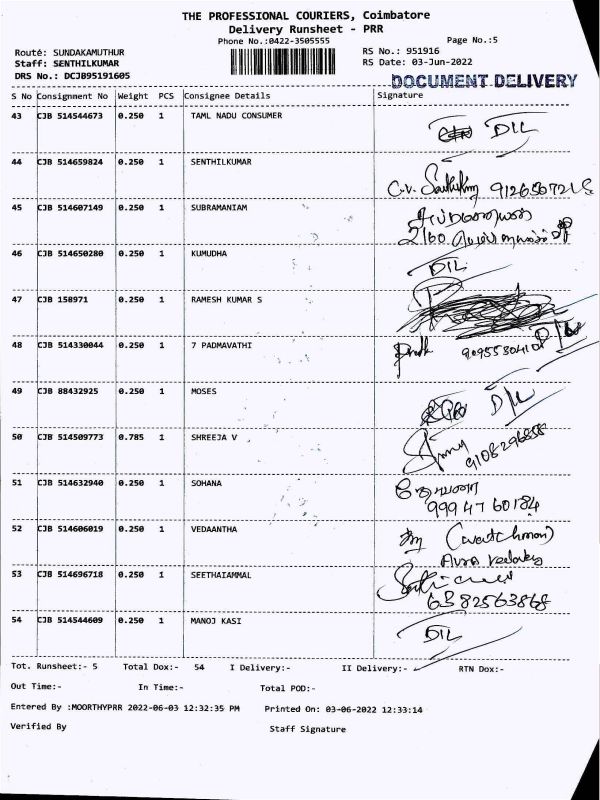 THE PROFESSIONAL COURIERS, Coimbatore
Delivery Runsheet - PRR
Phone No.:0422-3505555
Page No.:5
Route: SUNDAKAMUTHUR
RS No.: 951916
Staff: SENTHILKUMAR
RS Date: 03-Jun-2022
DRS No.: DCJB95191605
DOCUMENT DELIVERY
S No Consignment No Weight PCS Consignee Details Signature
43 CJB 514544673 0.250 1 TAMIL NADU CONSUMER DIL
44 CJB 514659824 0.250 1 SENTHILKUMAR C.V.
45 CJB 514607149 0.250 1 SUBRAMANIAM
2160
46 CJB 514650280 0.250 1 KUMUDHA DIL
47 CJB 158971 0.250 1 RAMESH KUMAR S
48 CJB 514330044 1 0.250 1 7 PADMAVATHI
49 CJB 88432925 0.250 1 MOSES DIL
50 CJB 514509773 0.785 1 SHREEJA V
9108296858
51 CJB 514632940 0.250 1 SOHANA
999 47 60184
52 CJB 514606019 0.250 1 VEDAANTHA (watchman)
53 CJB 514696718 0.250 1 SEETHAIAMMAL
6382563868
54 CJB 514544609 0.250 1 MANOJ KASI DIL
Tot. Runsheet:- 5 Total Dox:- 54 I Delivery:- II Delivery:- RTN Dox:-
Out Time:- In Time:- Total POD:-
Entered By :MOORTHYPRR 2022-06-03 12:32:35 PM Printed On: 03-06-2022 12:33:14
Verified By Staff Signature